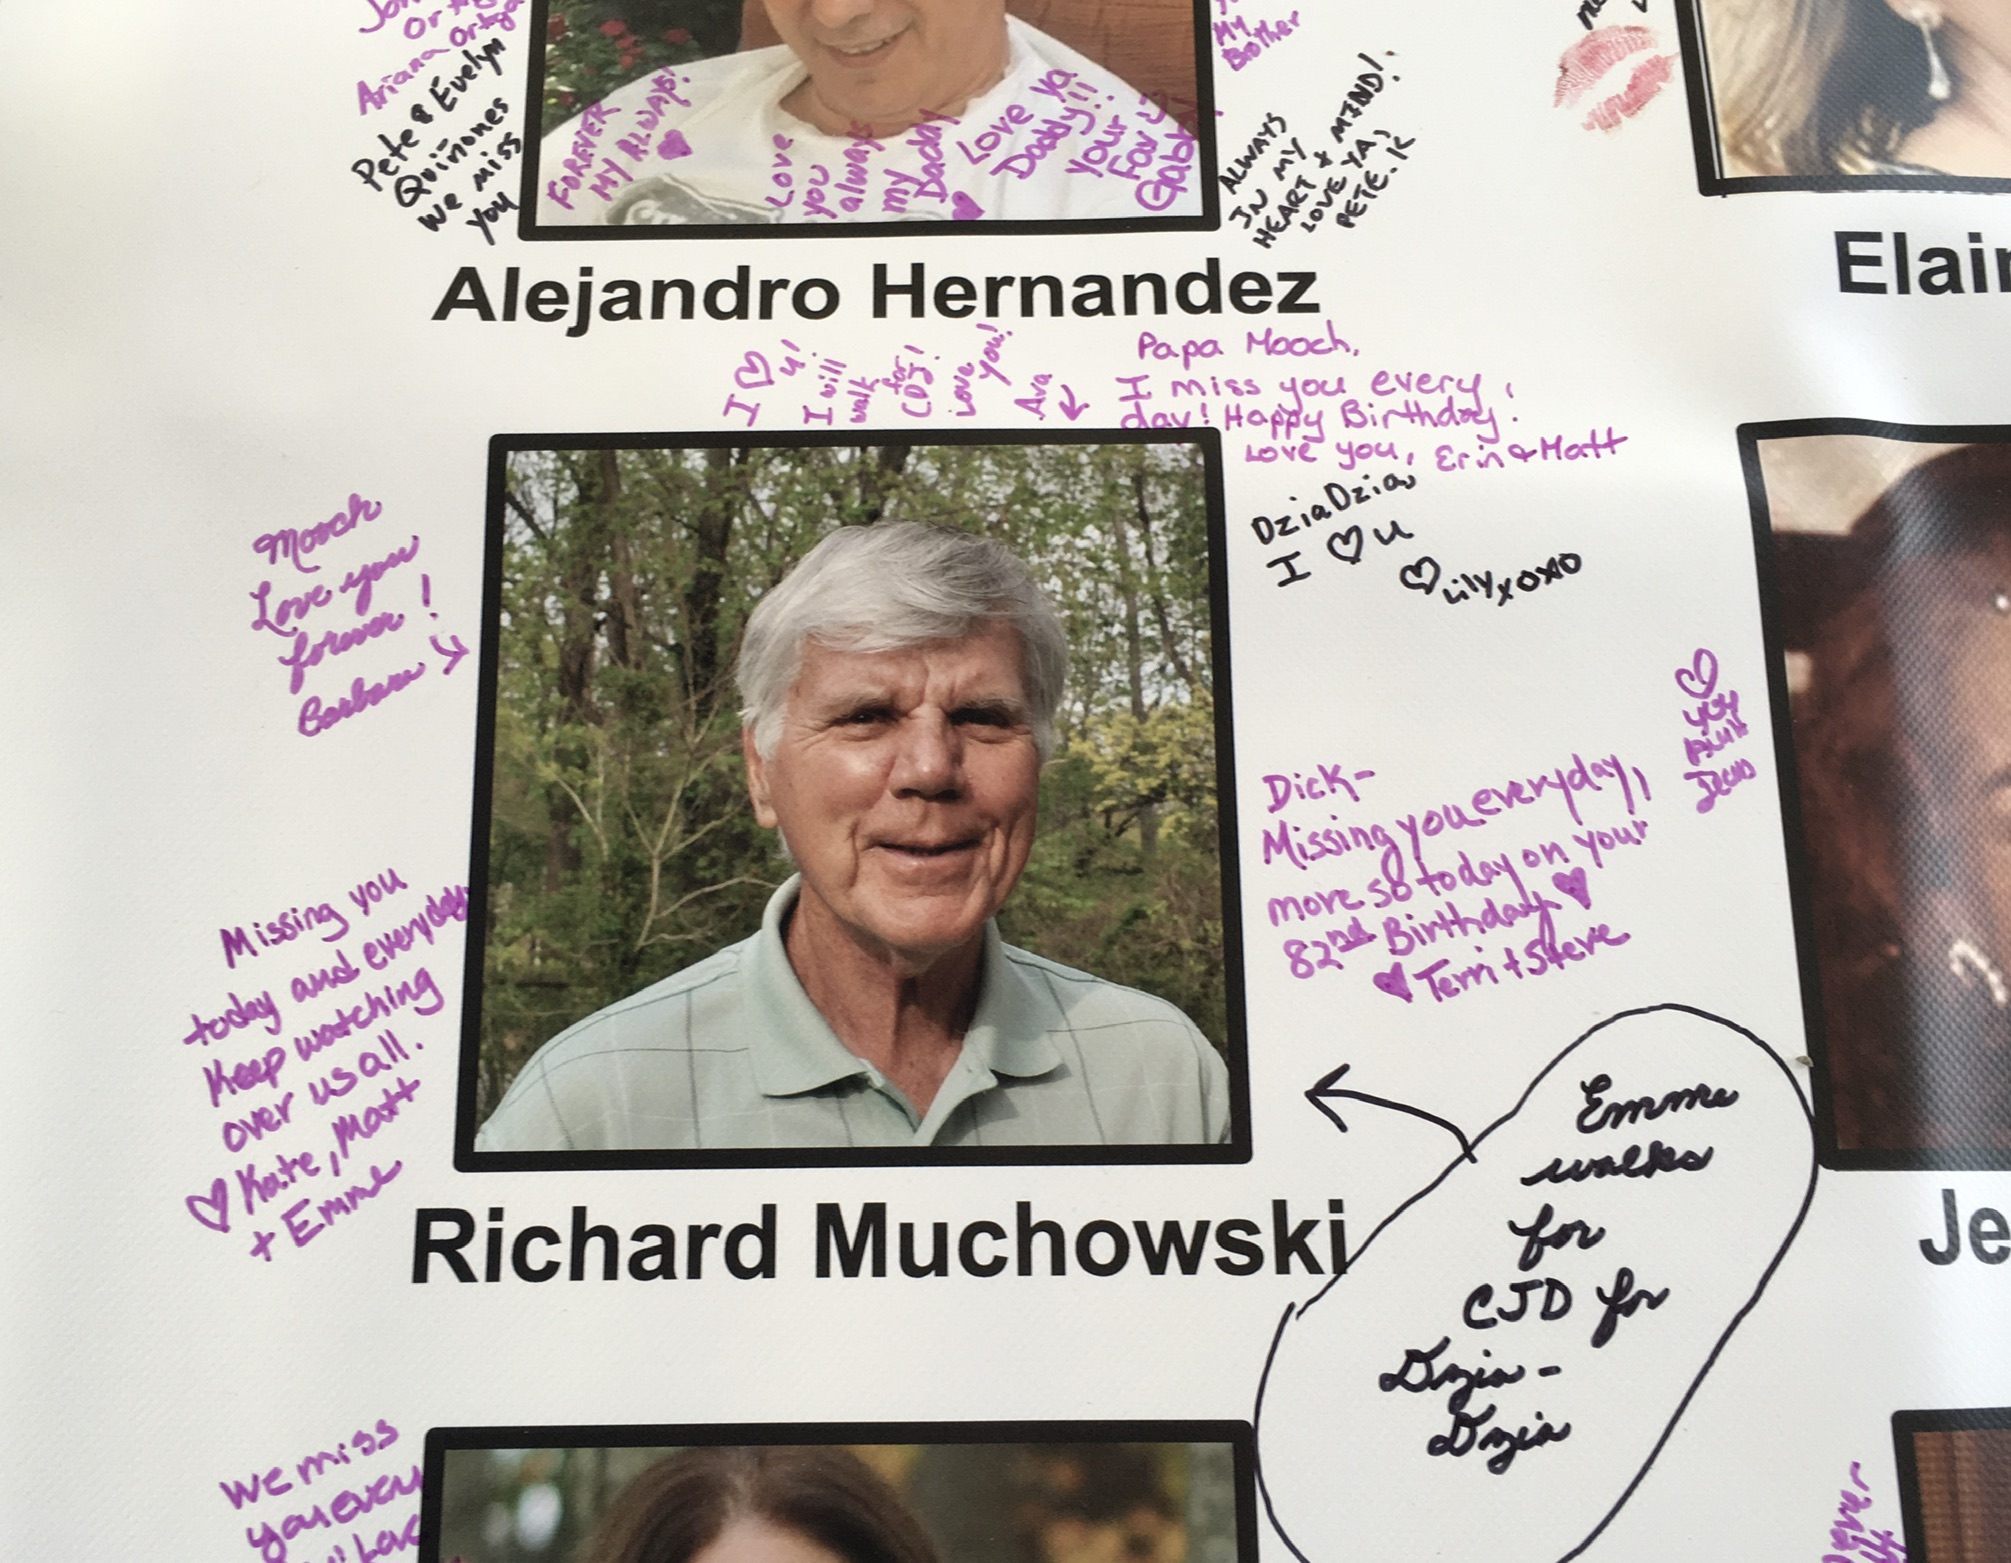 Ariana Ortega
Pete & Evelyn
Quiñones
we miss
you
FOREVER
MY ALWAYS!
Love
you
always
my
Daddy
Love ya
Daddy!!
Your
Fav
Gabby
My
Bother
ALWAYS
IN MY
HEART & MIND!
LOVE YA,
PETE.K
Alejandro Hernandez
Elain
I ♡ u!
I will
walk
for
CDJ!
Love
you!
Ava
Papa Mooch,
I miss you every
day! Happy Birthday!
Love you, Erin & Matt
DziaDzia
I ♡ u
♡ Lily xoxo
Mooch
Love you
forever!
Barbara
Missing you
today and everyday.
Keep watching
over us all.
♡ Kate, Matt
+ Emme
Dick-
Missing you everyday,
more so today on your
82nd Birthday ♥
♥ Terri + Steve
Richard Muchowski
Emme
walks
for
CJD for
Dzia-
Dzia
Je
We miss
you every
Love